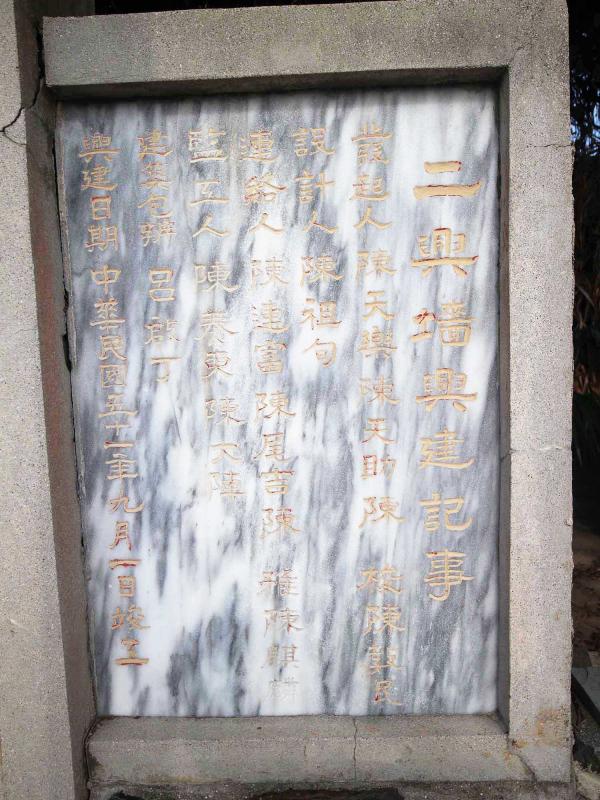 二興墻興建記事
發起人 陳天與 陳天助 陳 陳鼓民
設計人 陳祖句
連給人 陳連富 陳尾吉 陳 雍 陳麒麟
監工人 陳泰東 陳大陸
建築包辦 呂啟丁
興建日期 中華民國五十一年九月一日竣工